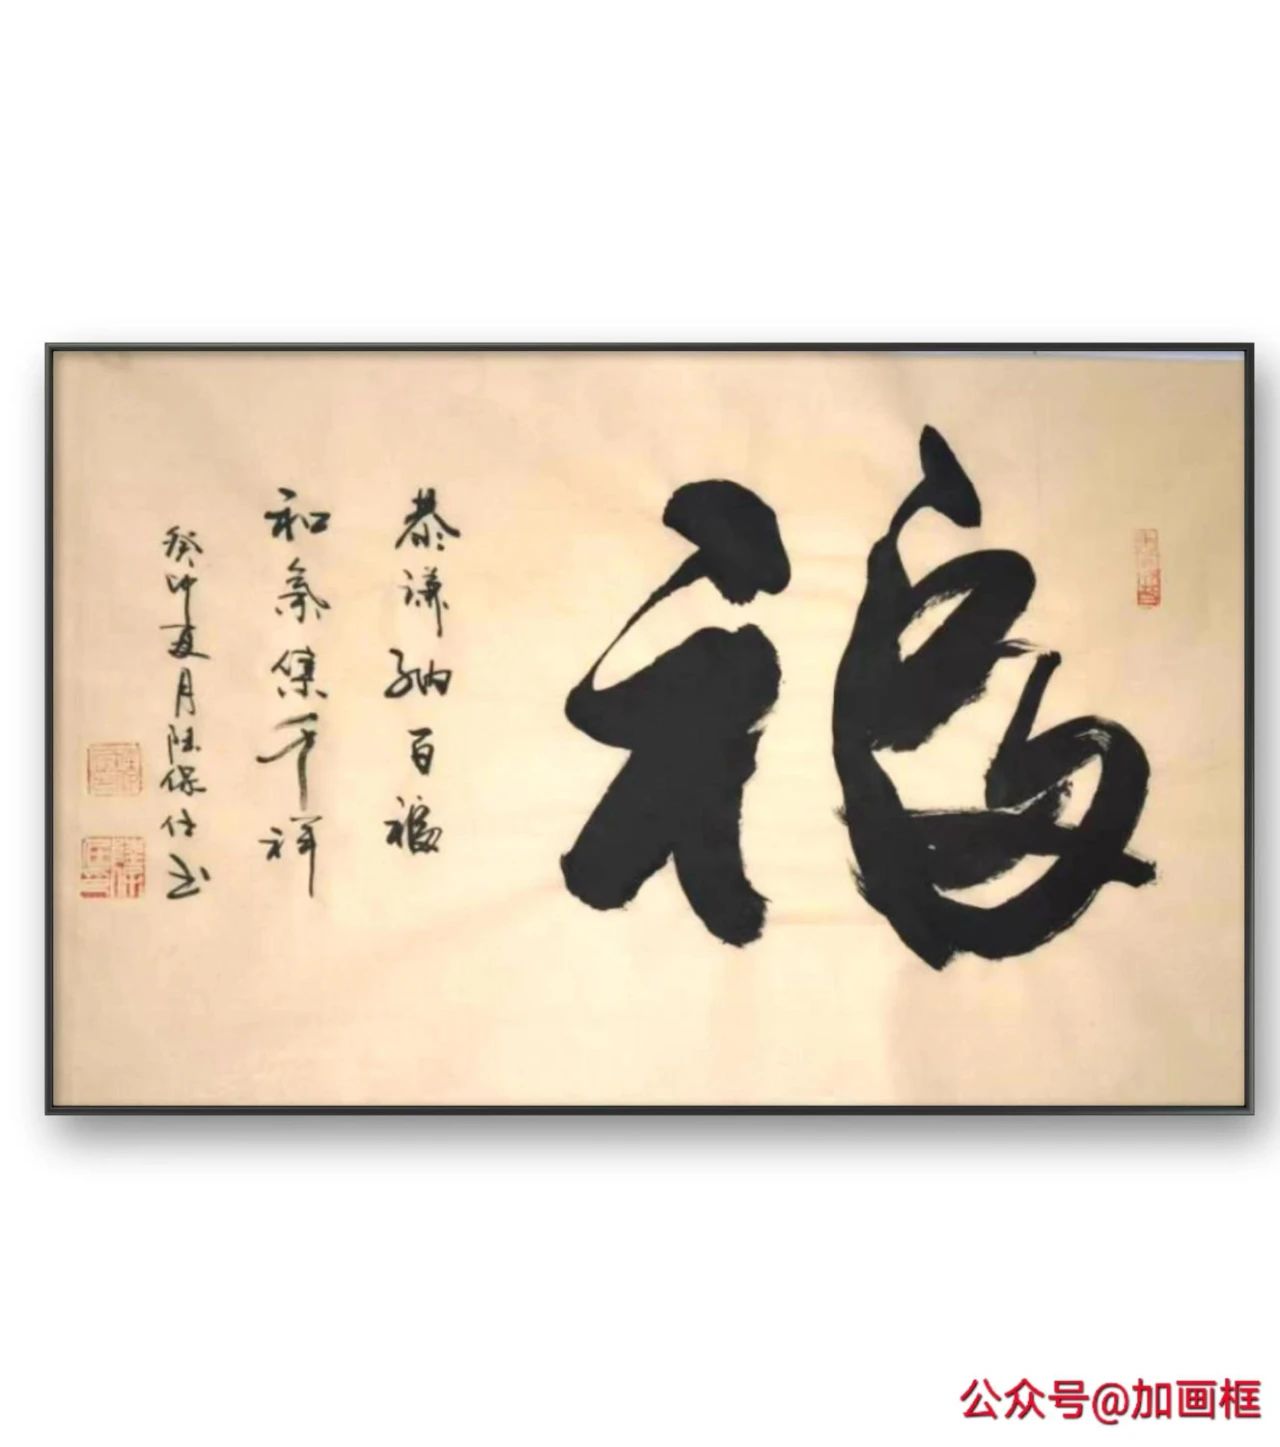 福
恭谦纳百福
和氣集千祥
癸卯夏月陆保仕书
公众号@加画框